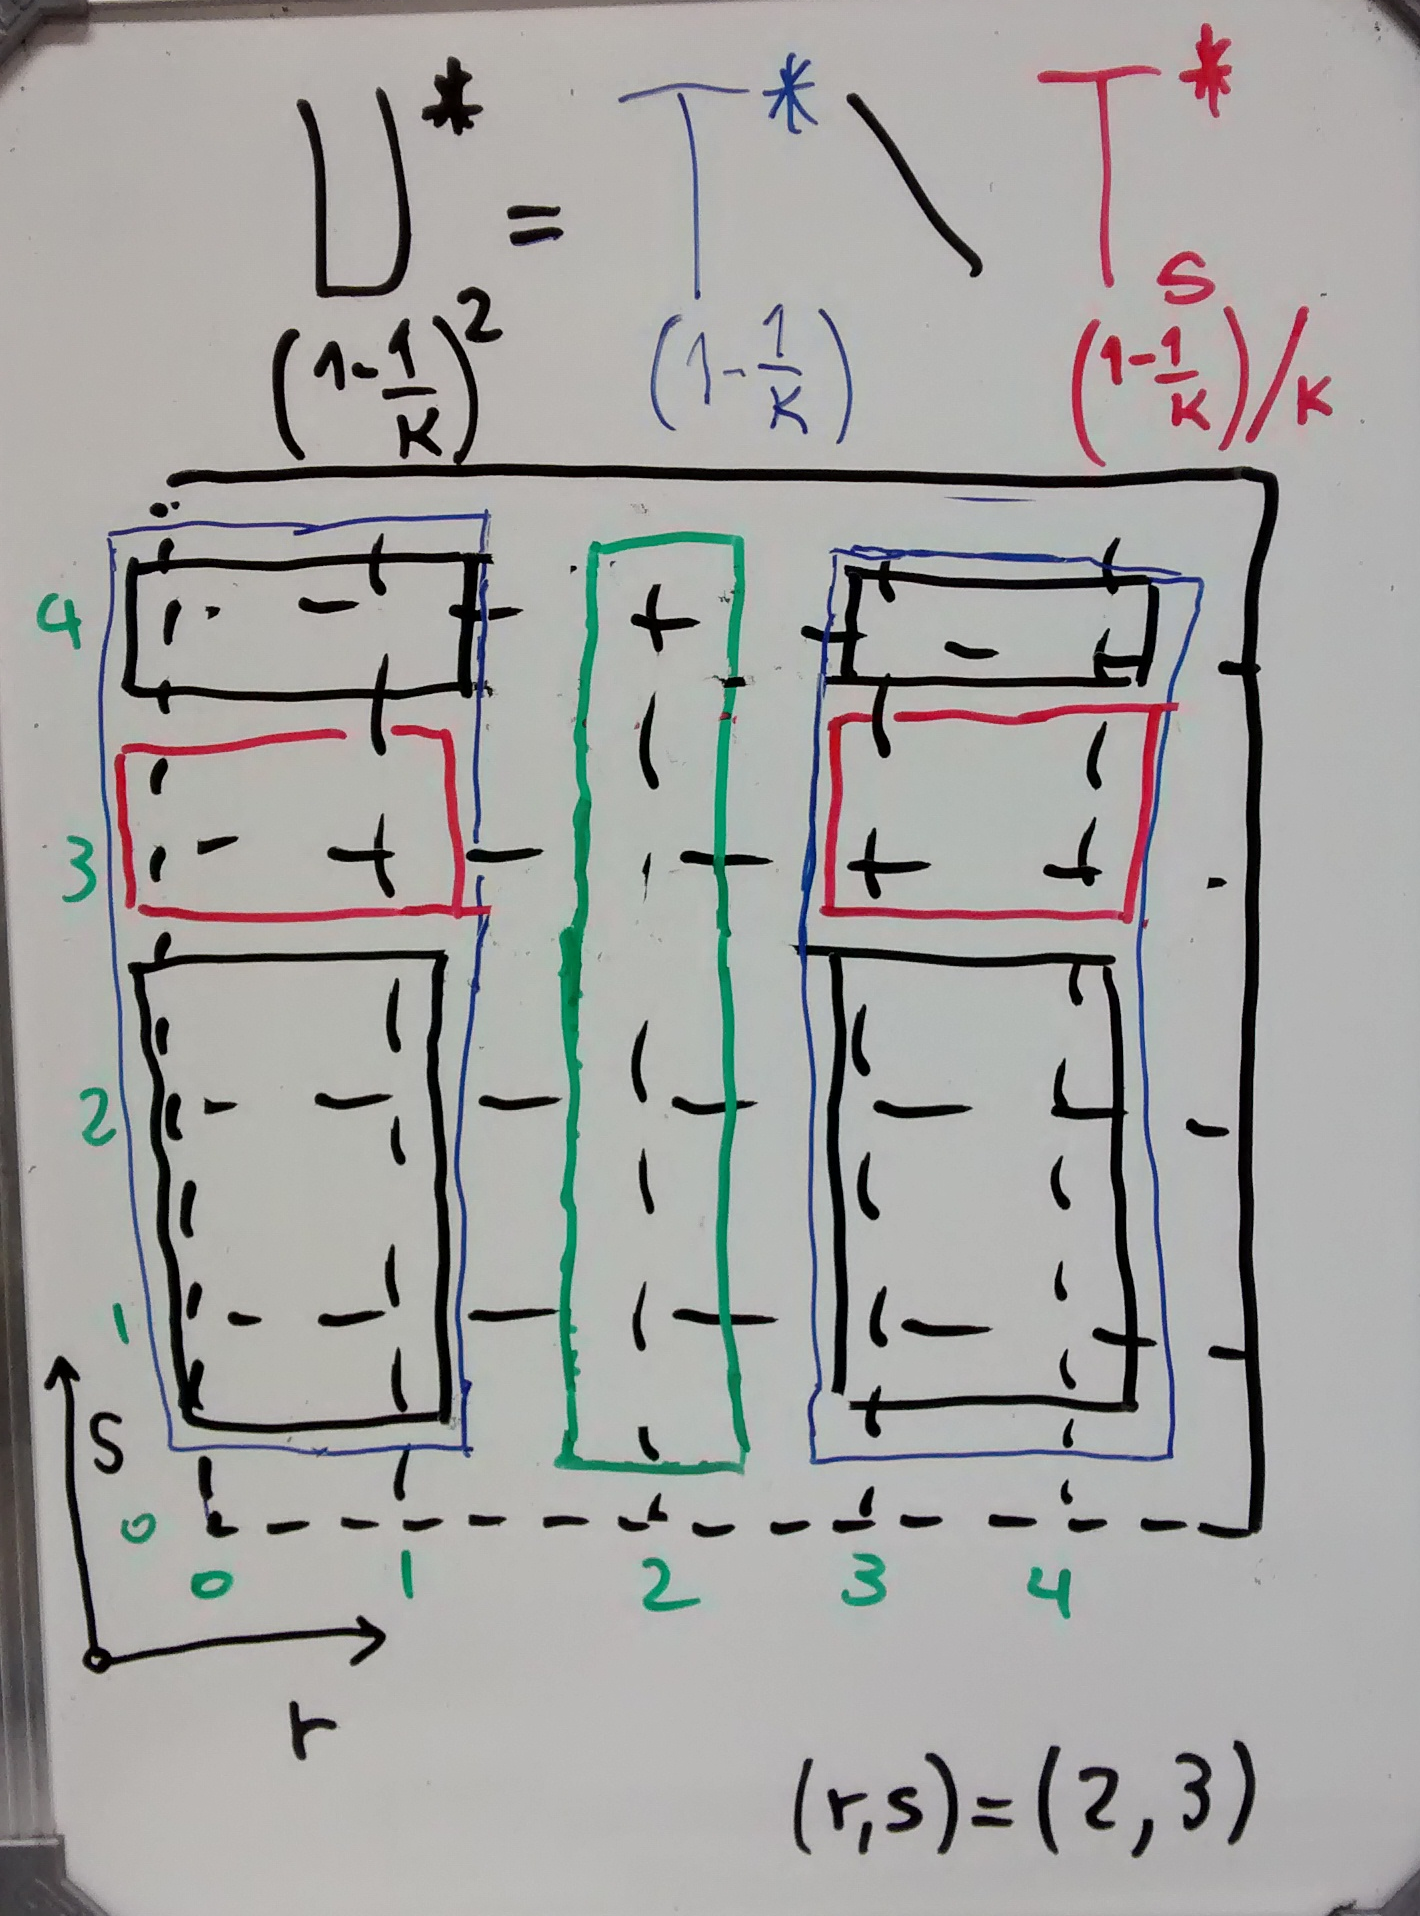 U* = T* \ T*s
(1-1/K)² (1-1/K) (1-1/K)/K
4
3
2
1
S
0
0 1 2 3 4
r
(r,s)=(2,3)